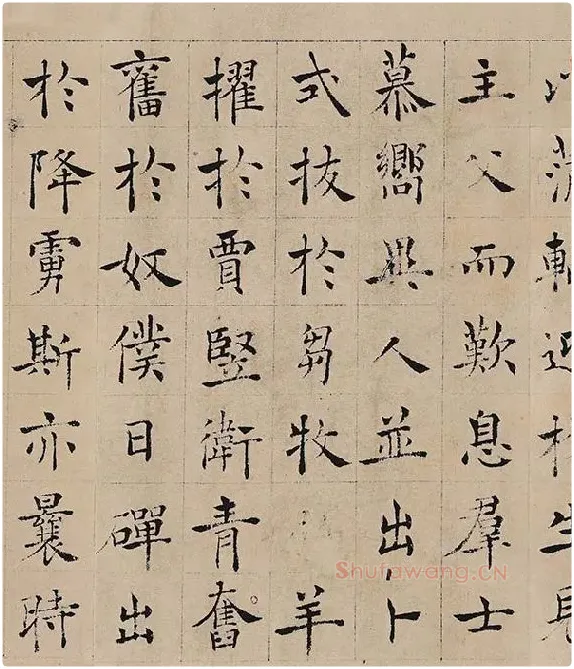 主父而歎息羣士
慕嚮異人並出卜
式拔於芻牧羊
擢於賈豎衛青奮
奮於奴僕日磾出
於降虜斯亦曩時
Shufawang.CN